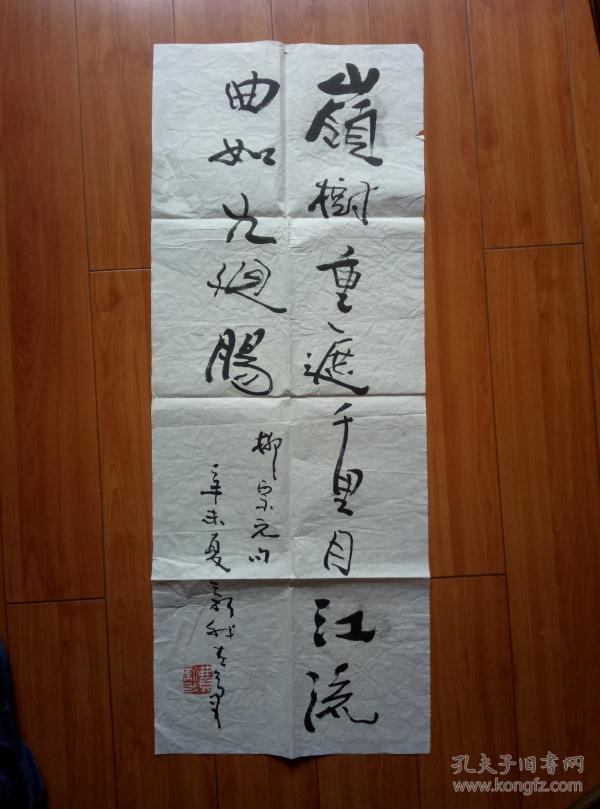 嶺樹重遮千里目江流
曲如九廻腸
柳宗元句
辛未夏
孔夫子旧书网
www.kongfz.com